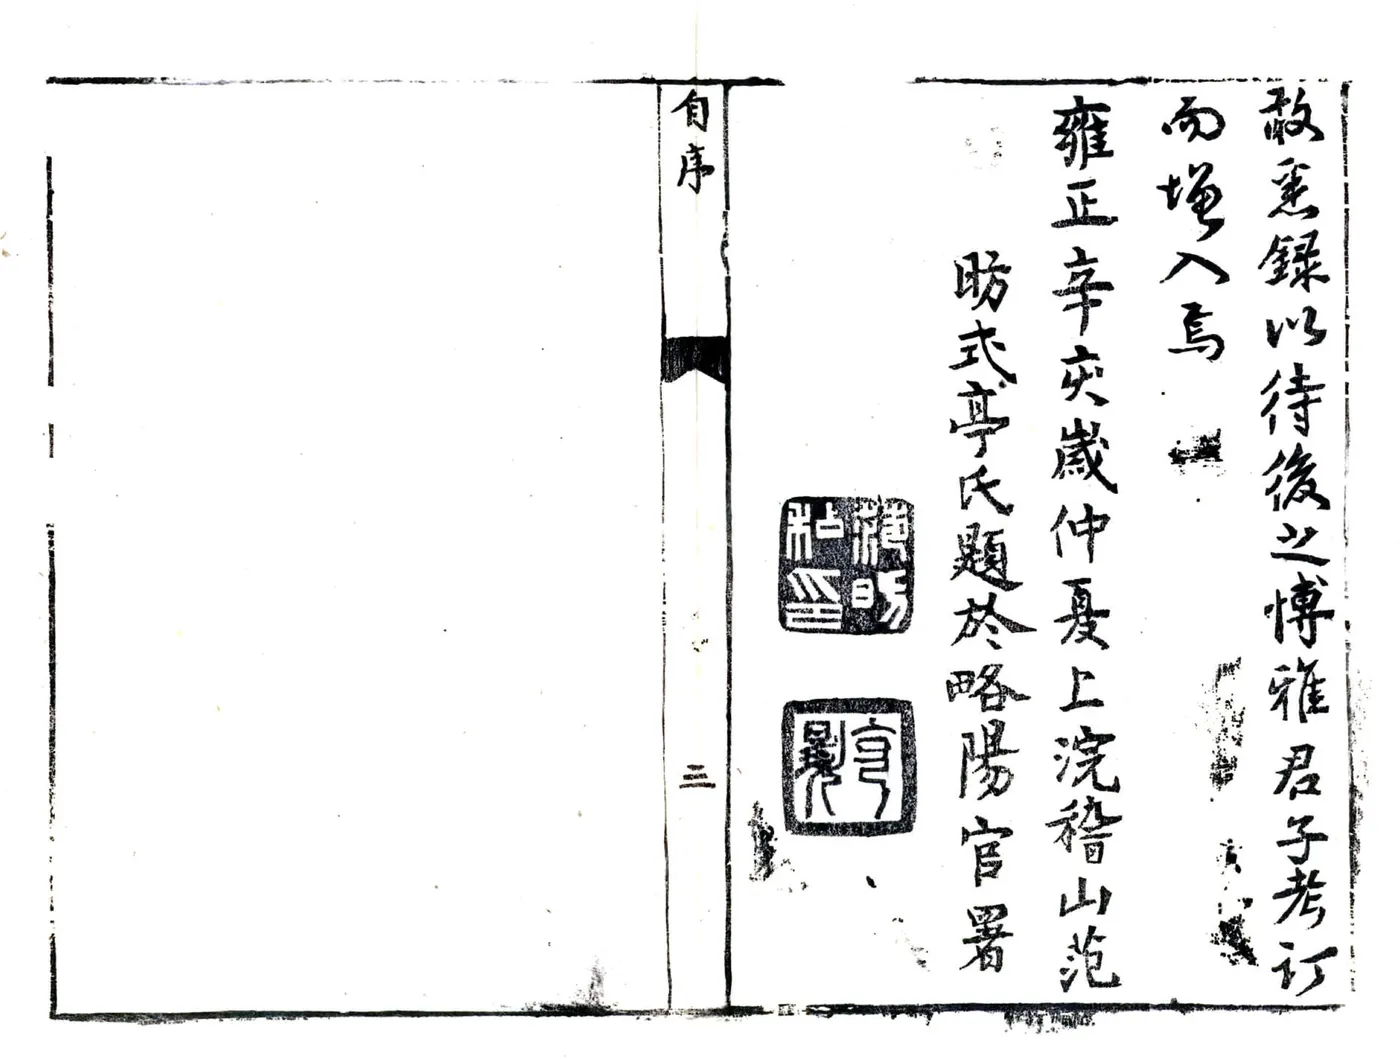 敢悉録以待後之博雅君子考訂
而增入焉
雍正辛亥歲仲夏上浣稽山范
昉式亭氏題於略陽官署
范昉私印
自序
三